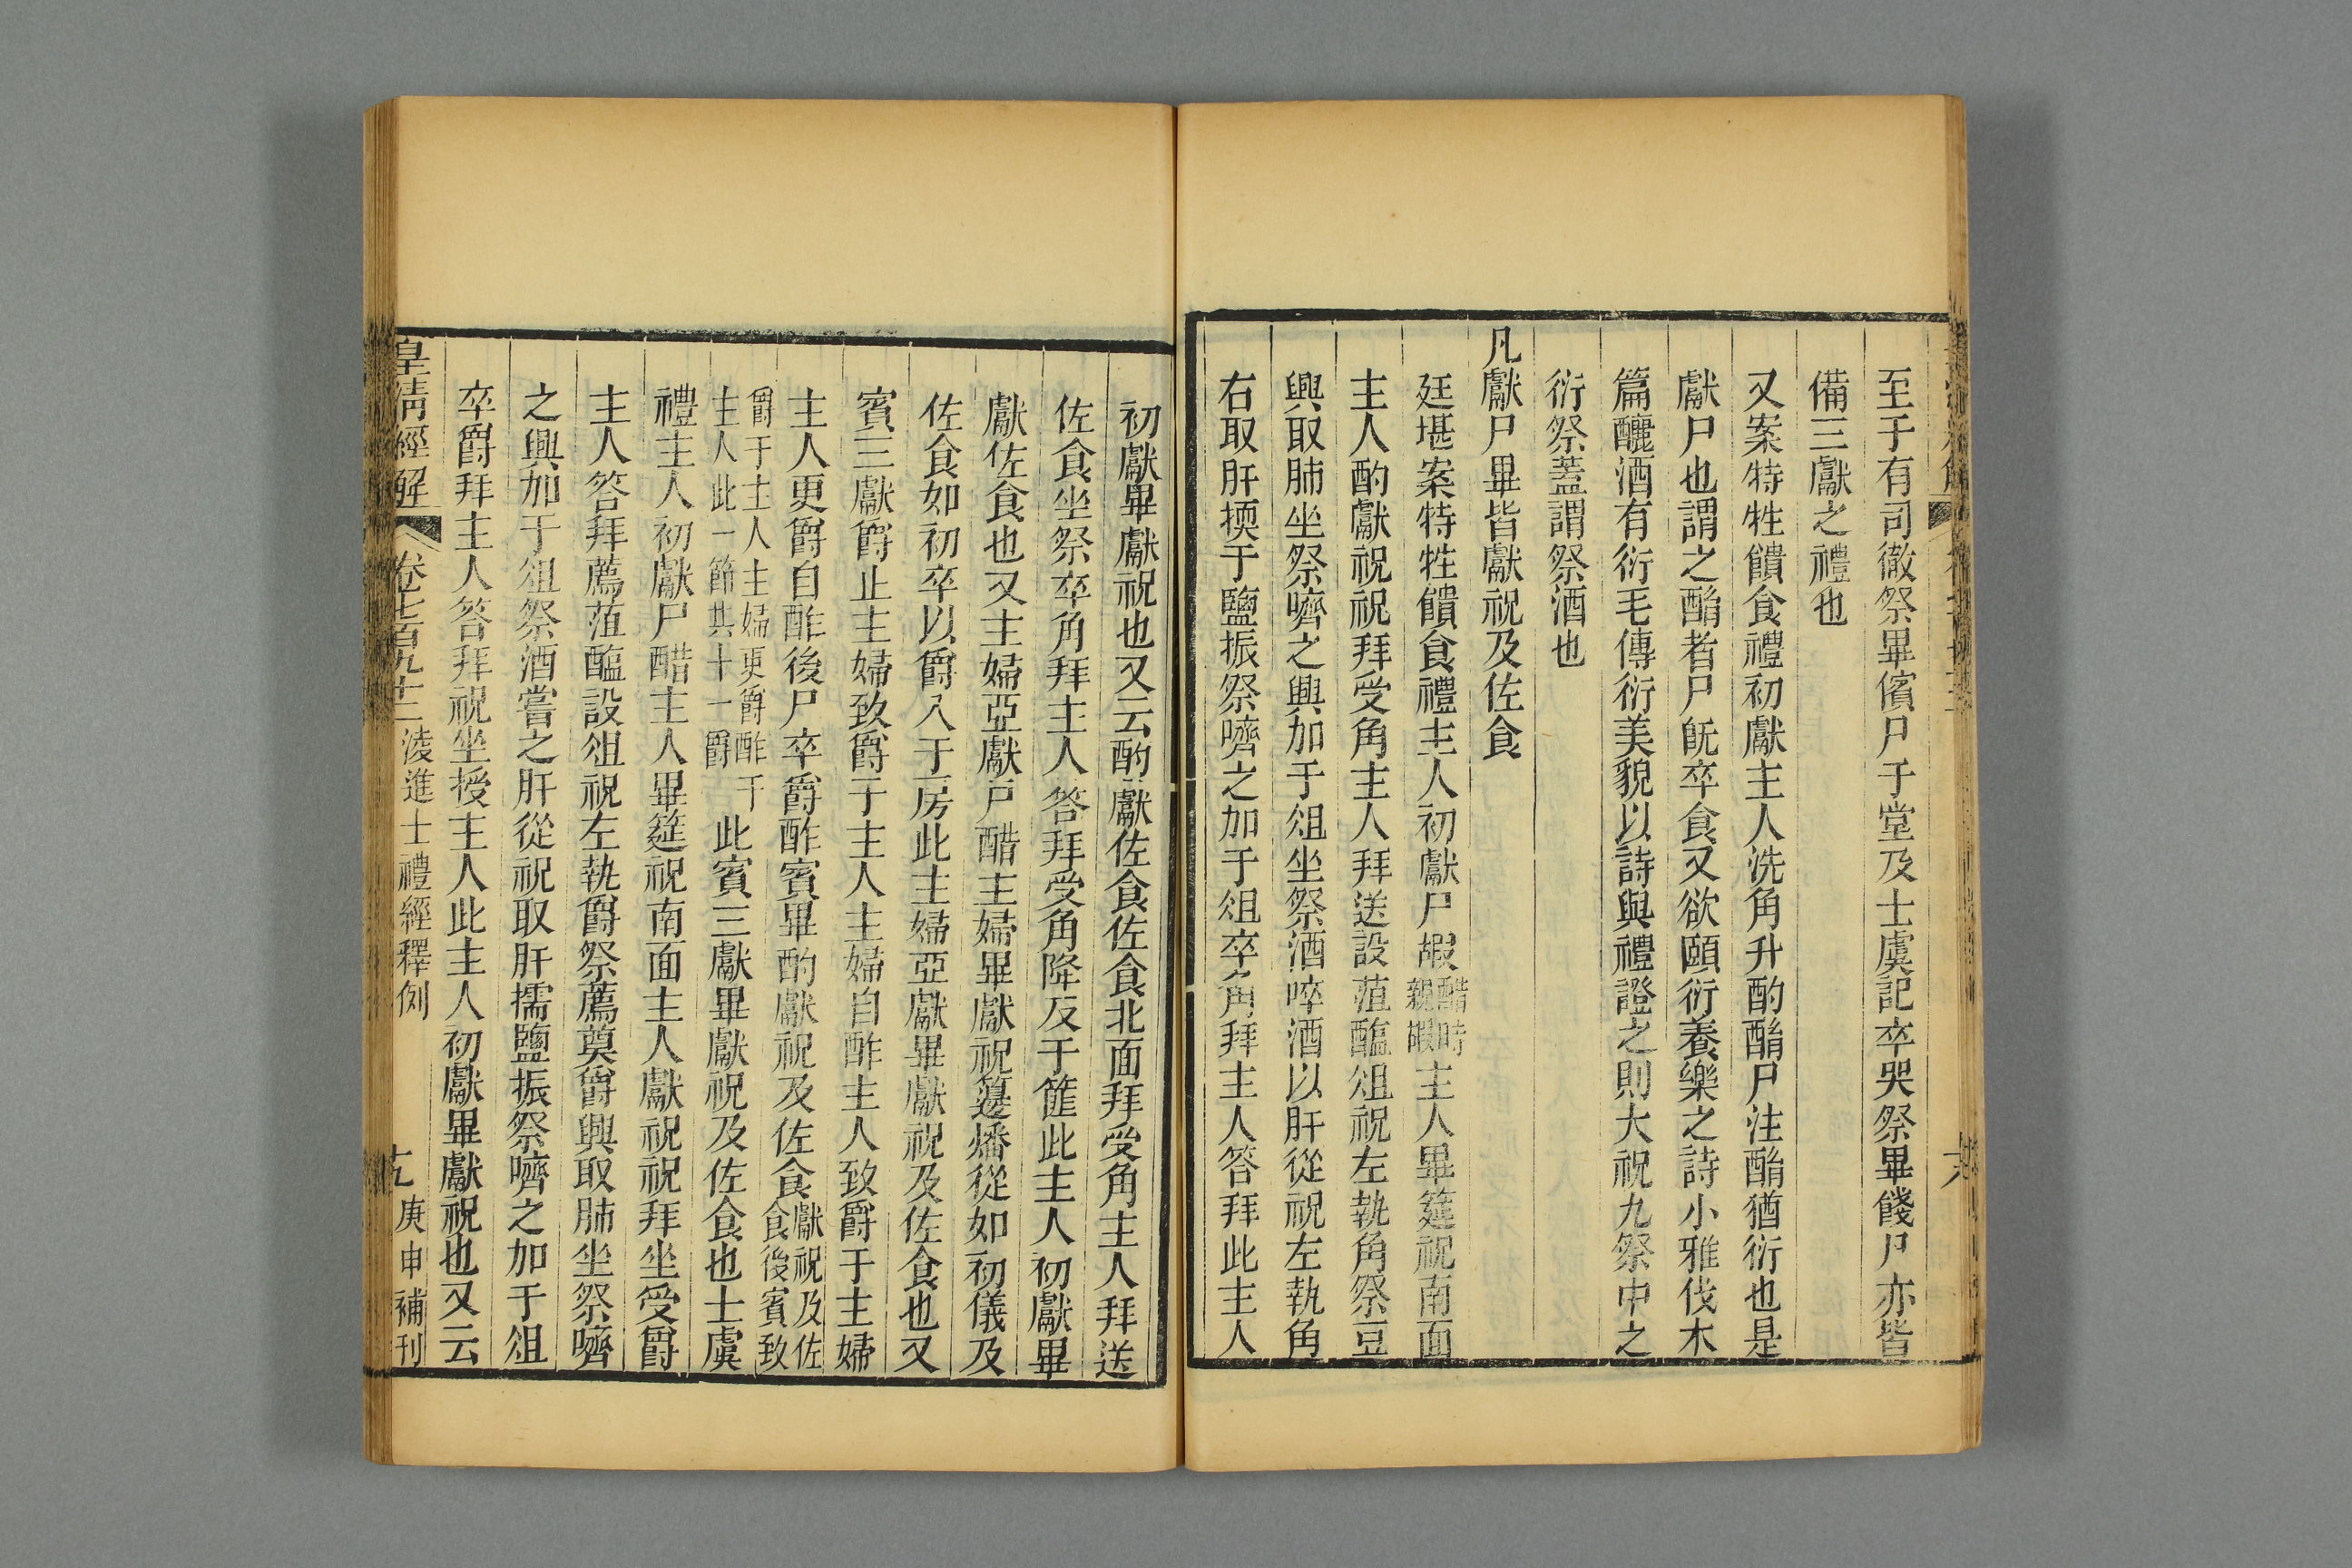 至于有司徹祭畢儐尸于堂及士虞記卒哭祭畢餞尸亦皆
備三獻之禮也
又案特牲饋食禮初獻主人洗角升酌酳尸注酳猶衍也是
獻尸也謂之酳者尸既卒食又欲頤衍養樂之詩小雅伐木
篇釃酒有衍毛傳衍美貌以詩與禮證之則大祝九祭中之
衍祭蓋謂祭酒也
凡獻尸畢皆獻祝及佐食
廷堪案特牲饋食禮主人初獻尸嘏醋時親嘏主人畢筵祝南面
主人酌獻祝祝拜受角主人拜送設菹醢俎祝左執角祭豆
興取肺坐祭嚌之興加于俎坐祭酒啐酒以肝從祝左執角
右取肝㨎于鹽振祭嚌之加于俎卒角拜主人答拜此主人
初獻畢獻祝也又云酌獻佐食佐食北面拜受角主人拜送
佐食坐祭卒角拜主人答拜受角降反于篚此主人初獻畢
獻佐食也又主婦亞獻尸醋主婦畢獻祝籩燔從如初儀及
佐食如初卒以爵入于房此主婦亞獻畢獻祝及佐食也又
賓三獻爵止主婦致爵于主人主婦自酢主人致爵于主婦
主人更爵自酢後尸卒爵酢賓畢酌獻祝及佐食獻祝及佐食後賓致
爵于主人主婦更爵酢于主人此一節共十一爵此賓三獻畢獻祝及佐食也士虞
禮主人初獻尸醋主人畢筵祝南面主人獻祝祝拜坐受爵
主人答拜薦菹醢設俎祝左執爵祭薦奠爵興取肺坐祭嚌
之興加于俎祭酒嘗之肝從祝取肝擩鹽振祭嚌之加于俎
卒爵拜主人答拜祝坐授主人此主人初獻畢獻祝也又云
皇清經解 卷七百九十二 淩進士禮經釋例 庚申補刊